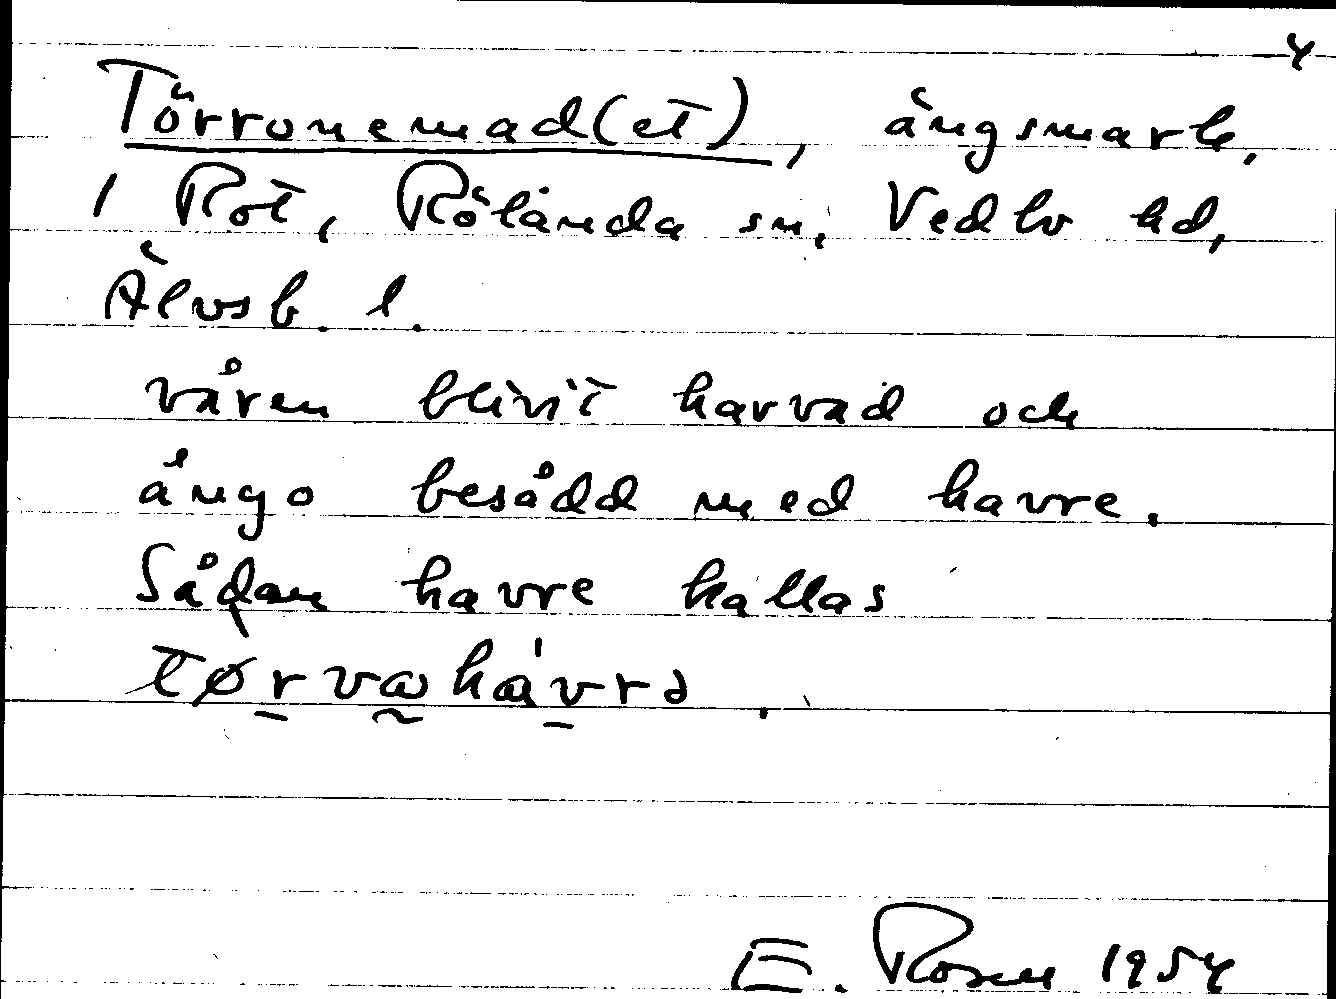 4
Törronemad(et), ängsmark,
1 Rot, Rölanda sn, Vedbo hd,
Älvsb. l.
våren blivit harvad och
ångo besådd med havre.
Sådan havre kallas
tørvahávrə.
E. Rosen 1954